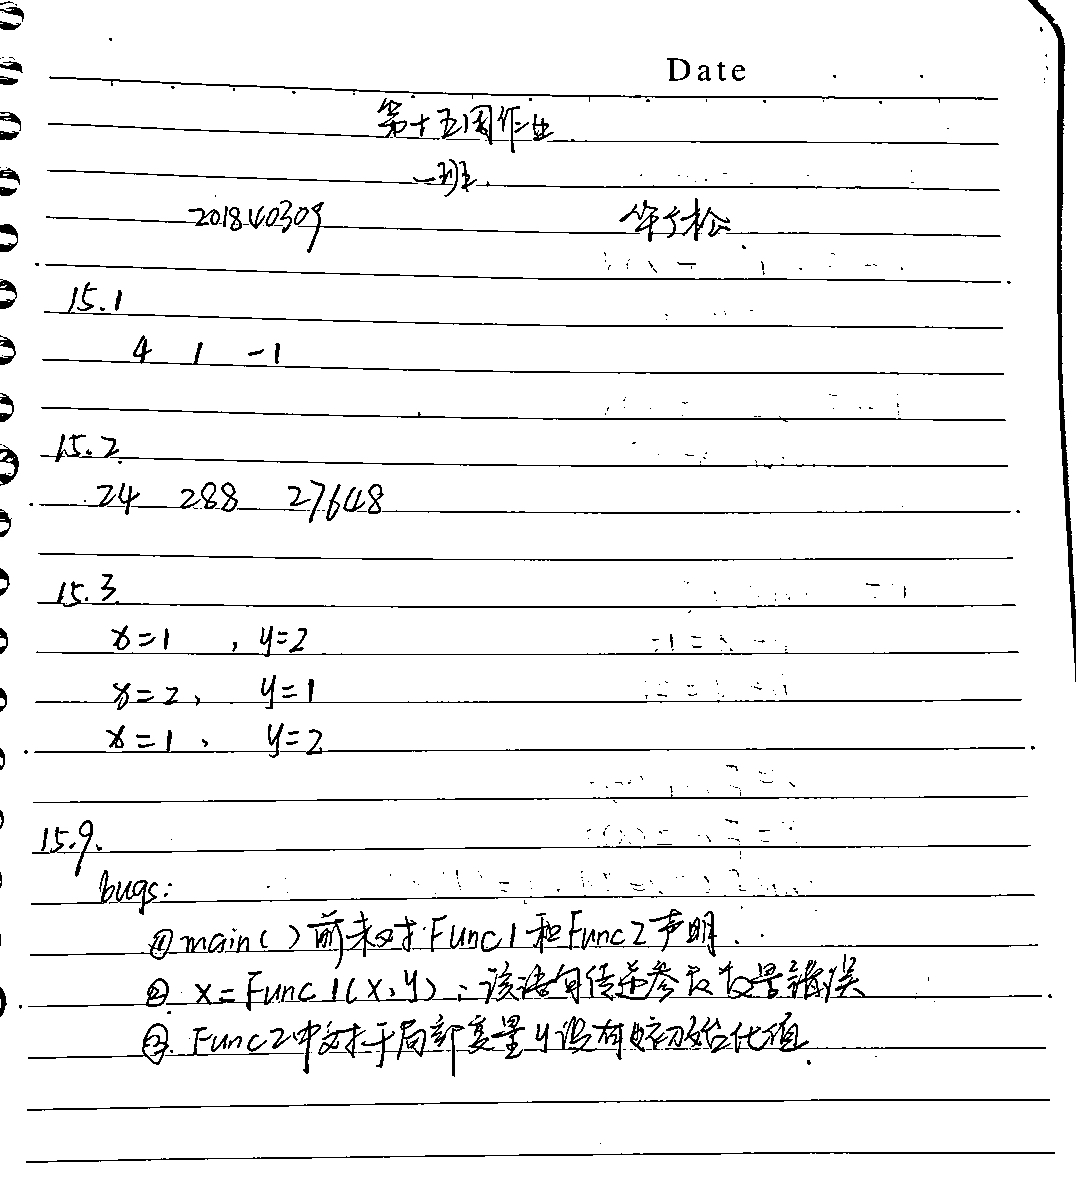 Date
第十五周作业
一班.
201840309
松
15.1
4 1 -1
15.2
24 288 27648
15.3
x=1 , y=2
x=2, y=1
x=1, y=2
15.9.
bugs:
① main( )前未对Func1和Func2声明.
② x=Func1(x,y);该语句传递参数数量错误
③. Func2中对于局部变量y没有初始化值.